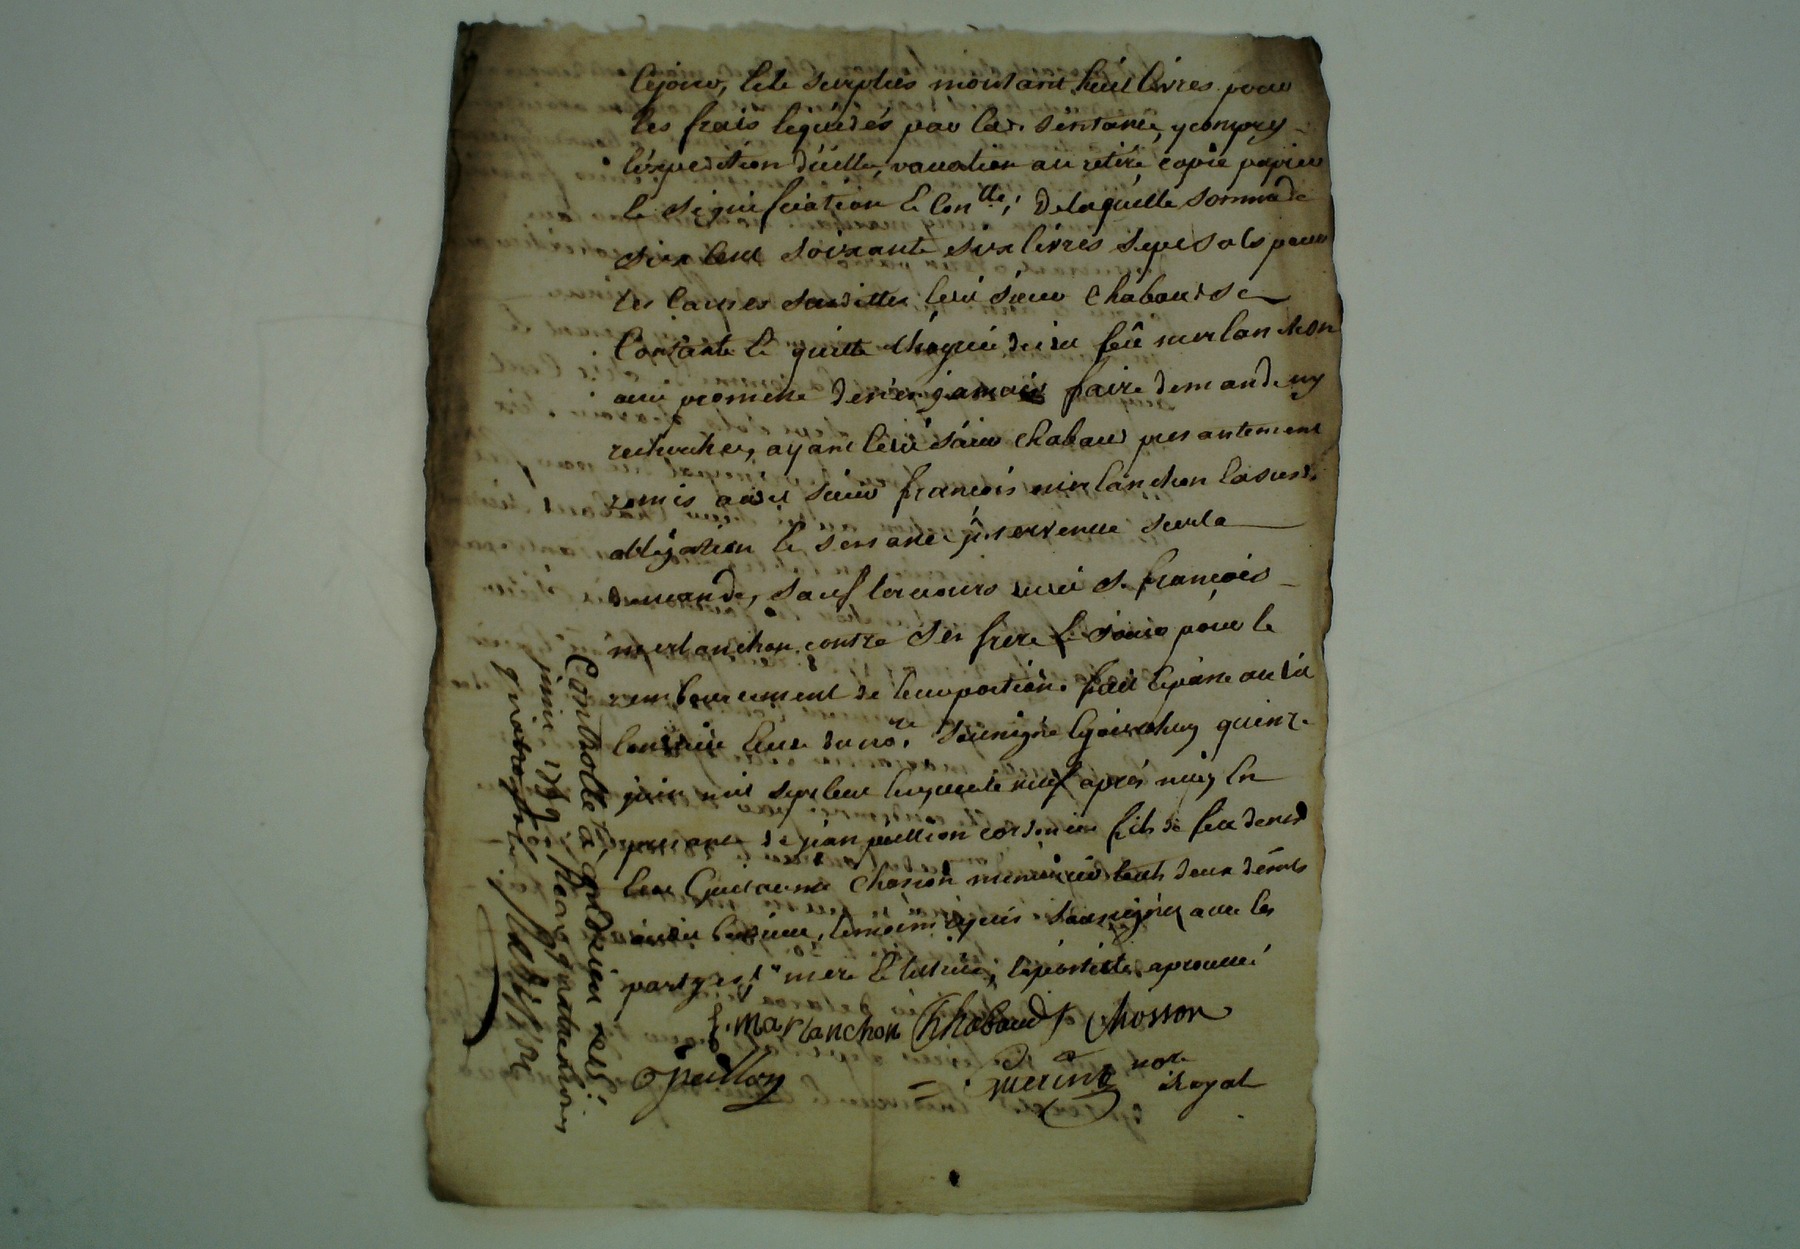 lejour, et le surplus montant huit livres pour
les frais liquidés par lad. sentance, y compry
l'expedition d'icelle, vaccation au retiré, copie papier
et signification et con.lle; de laquelle somme de
six cent soixante six livres sept sols pour
les causes susdittes ledit sieur Chabaud se
contante et quitte l'hoirie dudit feû merlanchon
avec promesse de n'en jamais faire demande ny
recherche, ayant ledit sieur Chabaud presantement
remis audit sieur françois merlanchon lasusd.
obligation et sentance intervenue sur la
demande, sauf le recours dudit s. françois
merlanchon contre ses frere et soeurs pour le
remboursement de leur portion. fait et passé audit
étude du no.re soussigné le jourdhuy quinze
juin mil sept cent cinquante neuf après midy en
presance de jean peillion cordonier fils de feu
et Guilaume Chosson menuisier touts deux
temoins requis soussignés avec les
parties
f. marlanchon Chabaud Chosson
peillon
no.re
royal
Controllé à
juin 1759